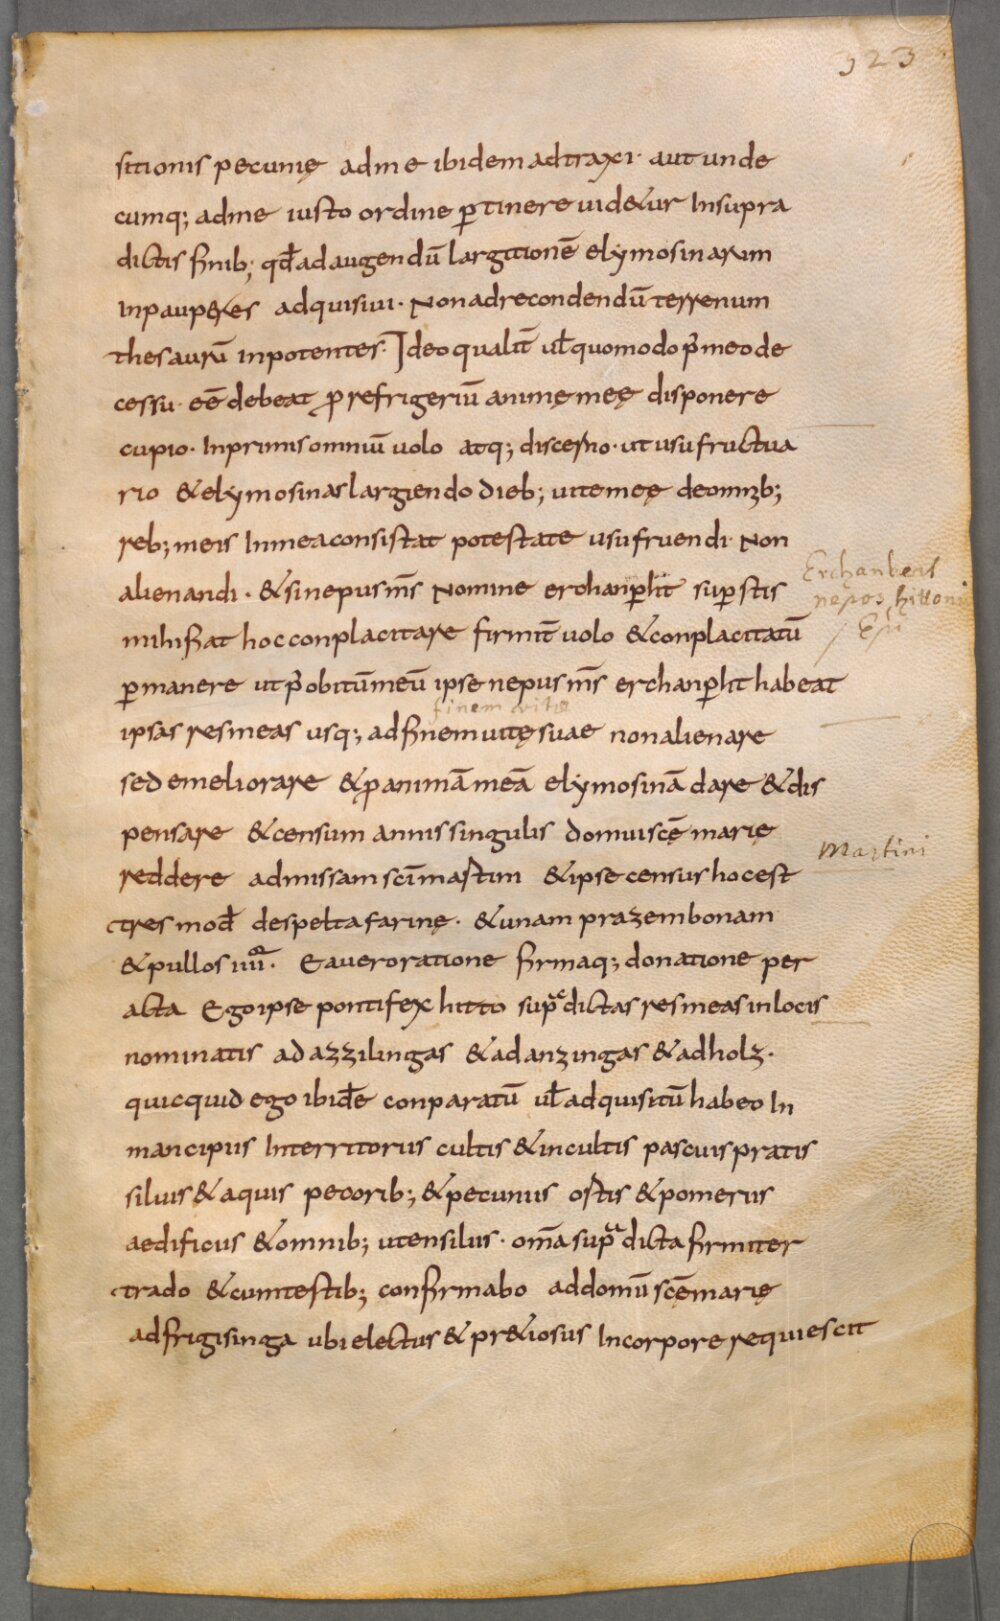 323
sitionis pecunię adme ibidem adtraxi· aut unde
cumq; adme iusto ordine ꝑtinere uid&ur Insupra
dictis finib; qđ ad augendū largitionē elymosinarum
inpauperes adquisiui· Non adrecondendū terrenum
thesaurū inpotentes· Ideo qualit̄ ul̄ quomodo p̄ meo de
cessu· eē debeat ꝓ refrigeriū animę meę disponere
cupio· Inprimis omniū uolo atq; discerno· ut usufructua
rio & elymosinas largiendo dieb; uitę meę de omnib;
reb; meis In mea consistat potestate usufruendi· Non
alienandi· & si nepus m̄s Nomine erchanꝑht supstis
Erchanberts
nepos hittonis
Ep̄i
mihi fiat hoc conplacitare firmit̄ uolo & conplacitatū
ꝑmanere ut p̄ obitū meū ipse nepus m̄s erchanꝑht habeat
finem vitę
ipsas res meas usq; ad finem uitę suae non alienare
sed emeliorare & ꝓ animā meā elymosinā dare & dis
pensare & censum annis singulis domui scē marię
Martini
reddere ad missam sc̄i martini & ipse census hoc est
tres mod̄ de spelta farine· & unam prazem bonam
& pullos iiii· Hac uero ratione firmaq; donatione per
acta Ego ipse pontifex hitto supradictas res meas in locis
nominatis ad azzilingas & ad anzingas & ad holz·
quicquid ego ibidē conparatū ul̄ adquisitū habeo In
mancipiis In territoriis cultis & incultis pascuis pratis
siluis & aquis pecorib; & pecuniis ortis & pomeriis
aedificiis & omnib; utensiliis· om̄a supradicta firmiter
trado & cum testib; confirmabo ad domū scē marię
ad frigisinga ubi electus & pr&iosus In corpore requiescit